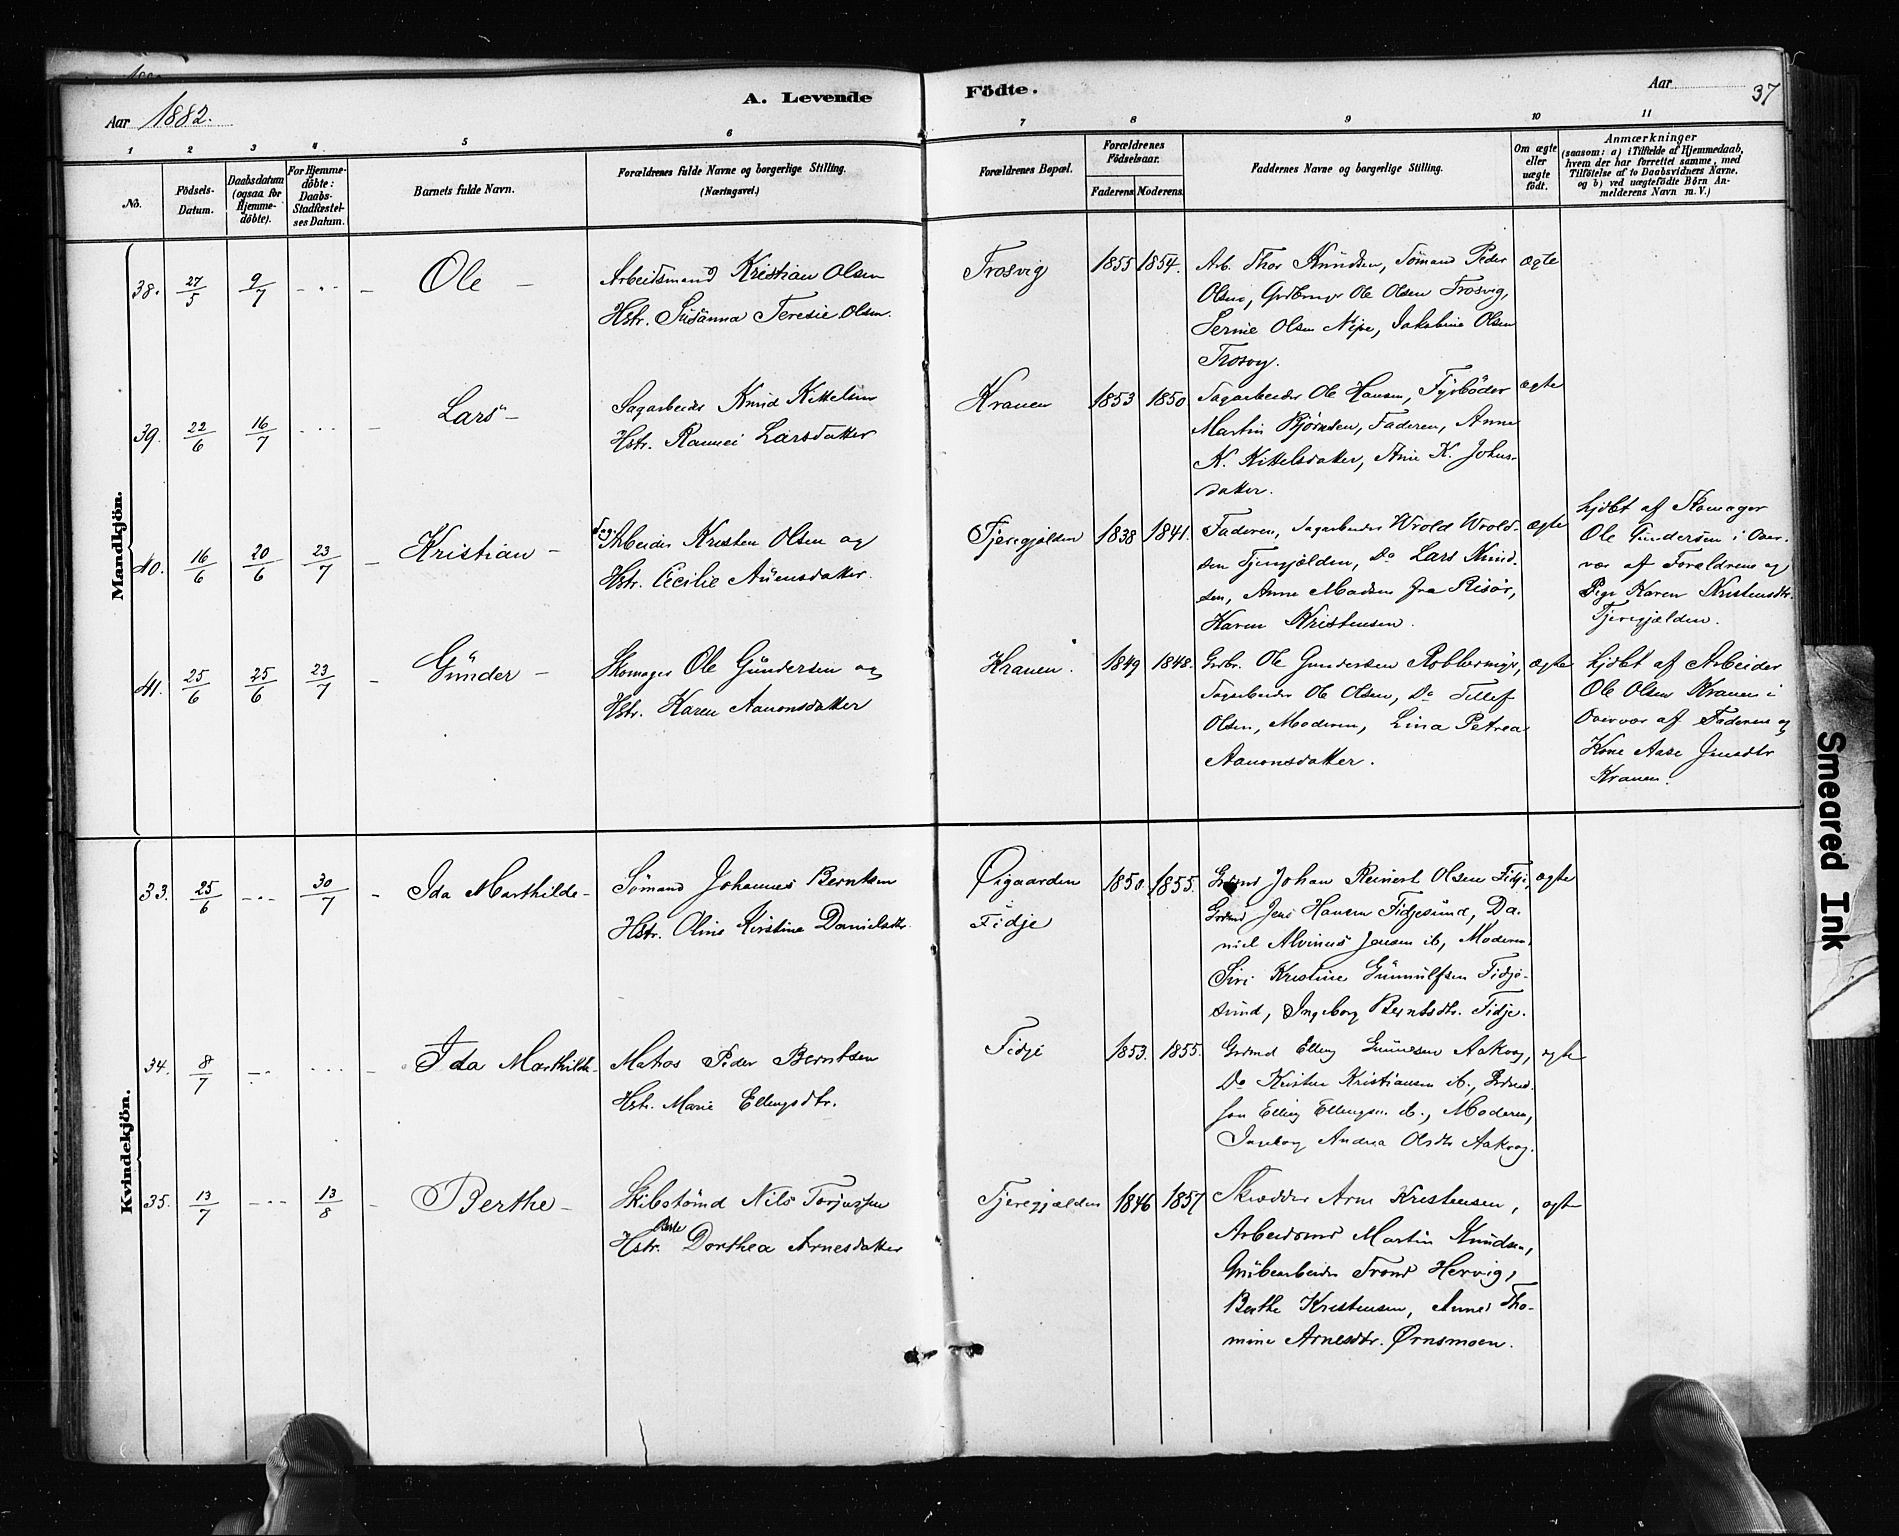 Aar 1882.
A. Levende Födte.
Aar 37
1 2 3 4 5 6 7 8 9 10 11
No.
Födsels-Datum.
Daabsdatum (ogsaa for Hjemmedöbte).
For Hjemmedöbte: Daabs-Stadfæstelses Datum.
Barnets fulde Navn.
Forældrenes fulde Navne og borgerlige Stilling. (Næringsvei.)
Forældrenes Bopæl.
Forældrenes Födselsaar.
Faderens. Moderens.
Faddernes Navne og borgerlige Stilling.
Om ægte eller uægte födt.
Anmærkninger
(saasom: a) i Tilfælde af Hjemmedaab, hvem der har forrettet samme, med Tilföielse af to Daabsvidners Navne, og b) ved uægtefödte Börn Anmelderens Navn m. V.)
Mandkjön.
38. 27/5 9/7 Ole
Arbeidsmand Kristian Olsen
Hstr. Susanna Teresie Olsen.
Trosvig 1855 1854.
Arb. Thor Knudsen, Sømand Peder
Olsen, Ole Olsen Trosvig,
Serine Olsen Nipe, Jakobine Olsen
Trosvig.
ægte
39. 22/6 16/7 Lars
Sagarbeider Knud Kittelsen
Hstr. Larsdatter
Kranen 1853 1850
Sagarbeider Ole Hansen, Fyrbøder
Martin Bjørnsen, Faderen, Anne
K. Kittelsdatter, Anne K. Johns-
datter.
ægte
40. 16/6 20/6 23/7 Kristian
Sagarbeider Kristen Olsen og
Hstr. Cecilie Auensdatter.
Tjeregjælden 1838 1841.
Faderen, Sagarbeider Wrold Wrold-
sen Tjeregjælden, Do Lars Knud-
sen, Anne Madsen fra Risør,
Karen Kristensen.
ægte
hjdbt af Skomager
Ole Gundersen i Over-
vær af Forældrene og
Pige Karen Kristensdtr.
Tjeregjælden.
41. 25/6 25/6 23/7 Gunder
Skomager Ole Gundersen og
Hstr. Karen Aanonsdatter
Kranen. 1849 1848.
Grdbr. Ole Gundersen Robbersmyr,
Sagarbeider Ole Olsen, Do Tellef
Olsen, Moderen, Lina Petrea
Aanonsdatter.
ægte
hjdbt af Arbeider
Ole Olsen Kranen i
Overvær af Faderen og
Kone Aase Jensdtr
Kranen.
Kvindekjön.
33. 25/6 30/7 Ida Marthilde
Sømand Johannes Berntsen
Hstr. Oline Kirstine Danielsdtr.
Øigaarden
Fidje
1850. 1855.
Grdmd Johan Reinert Olsen Fidje,
Grdmd Jens Hansen Fidjesund, Da-
niel Alvinus Jensen ib, Moderen,
Siri Kristine Gunnulfsen Fidje-
sund, Ingeborg Berntsdtr. Fidje.
ægte
34. 8/7 Ida Marthilde
Matros Peder Berntsen
Hstr. Marie Ellingsdtr.
Fidje 1853. 1855.
Grdmd Elling Gunnesen Aakvog,
Do Kristen Kristiansen ib., Grdmds.
søn Elling Ellingsen ib., Moderen,
Ingeborg Andrea Olsdtr Aakvog.
ægte
35. 13/7 13/8 Berthe
Skibstømd Nils Torjussen
Hstr. Berte Dorthea Arnesdatter
Tjeregjælden 1846 1857
Skrædder Arne Kristensen,
Arbeidsmd Martin Knudsen,
Grubearbeider Trond Hervig,
Berthe Kristensen, Anne Tho-
mine Arnesdtr. Ørnsmoen.
ægte
Smeared Ink